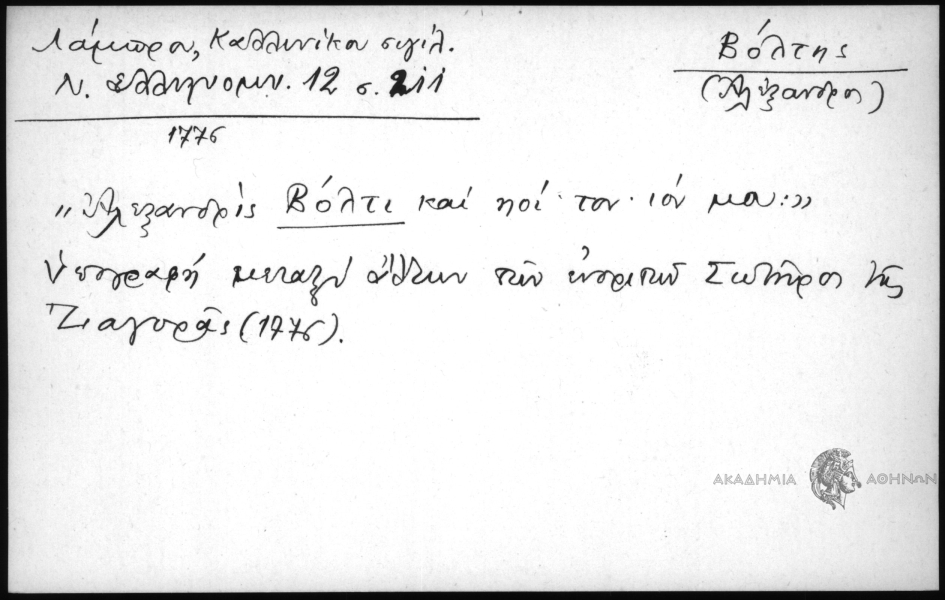 Λάμπρου, Καλλινίκου σιγίλ.
Ν. Ελληνομν. 12 σ. 211
1776
Βόλτης
(Ἀλέξανδρος)
„Ἀλεξανδρὶς Βόλτι καί ηοί· τον· ιόν μου:”
Ὑπογραφή μεταξύ ἄλλων τῶν Σωτῆρος τῆς
Ζιαγορᾶς (1776).
ΑΚΑΔΗΜΙΑ ΑΘΗΝΩΝ